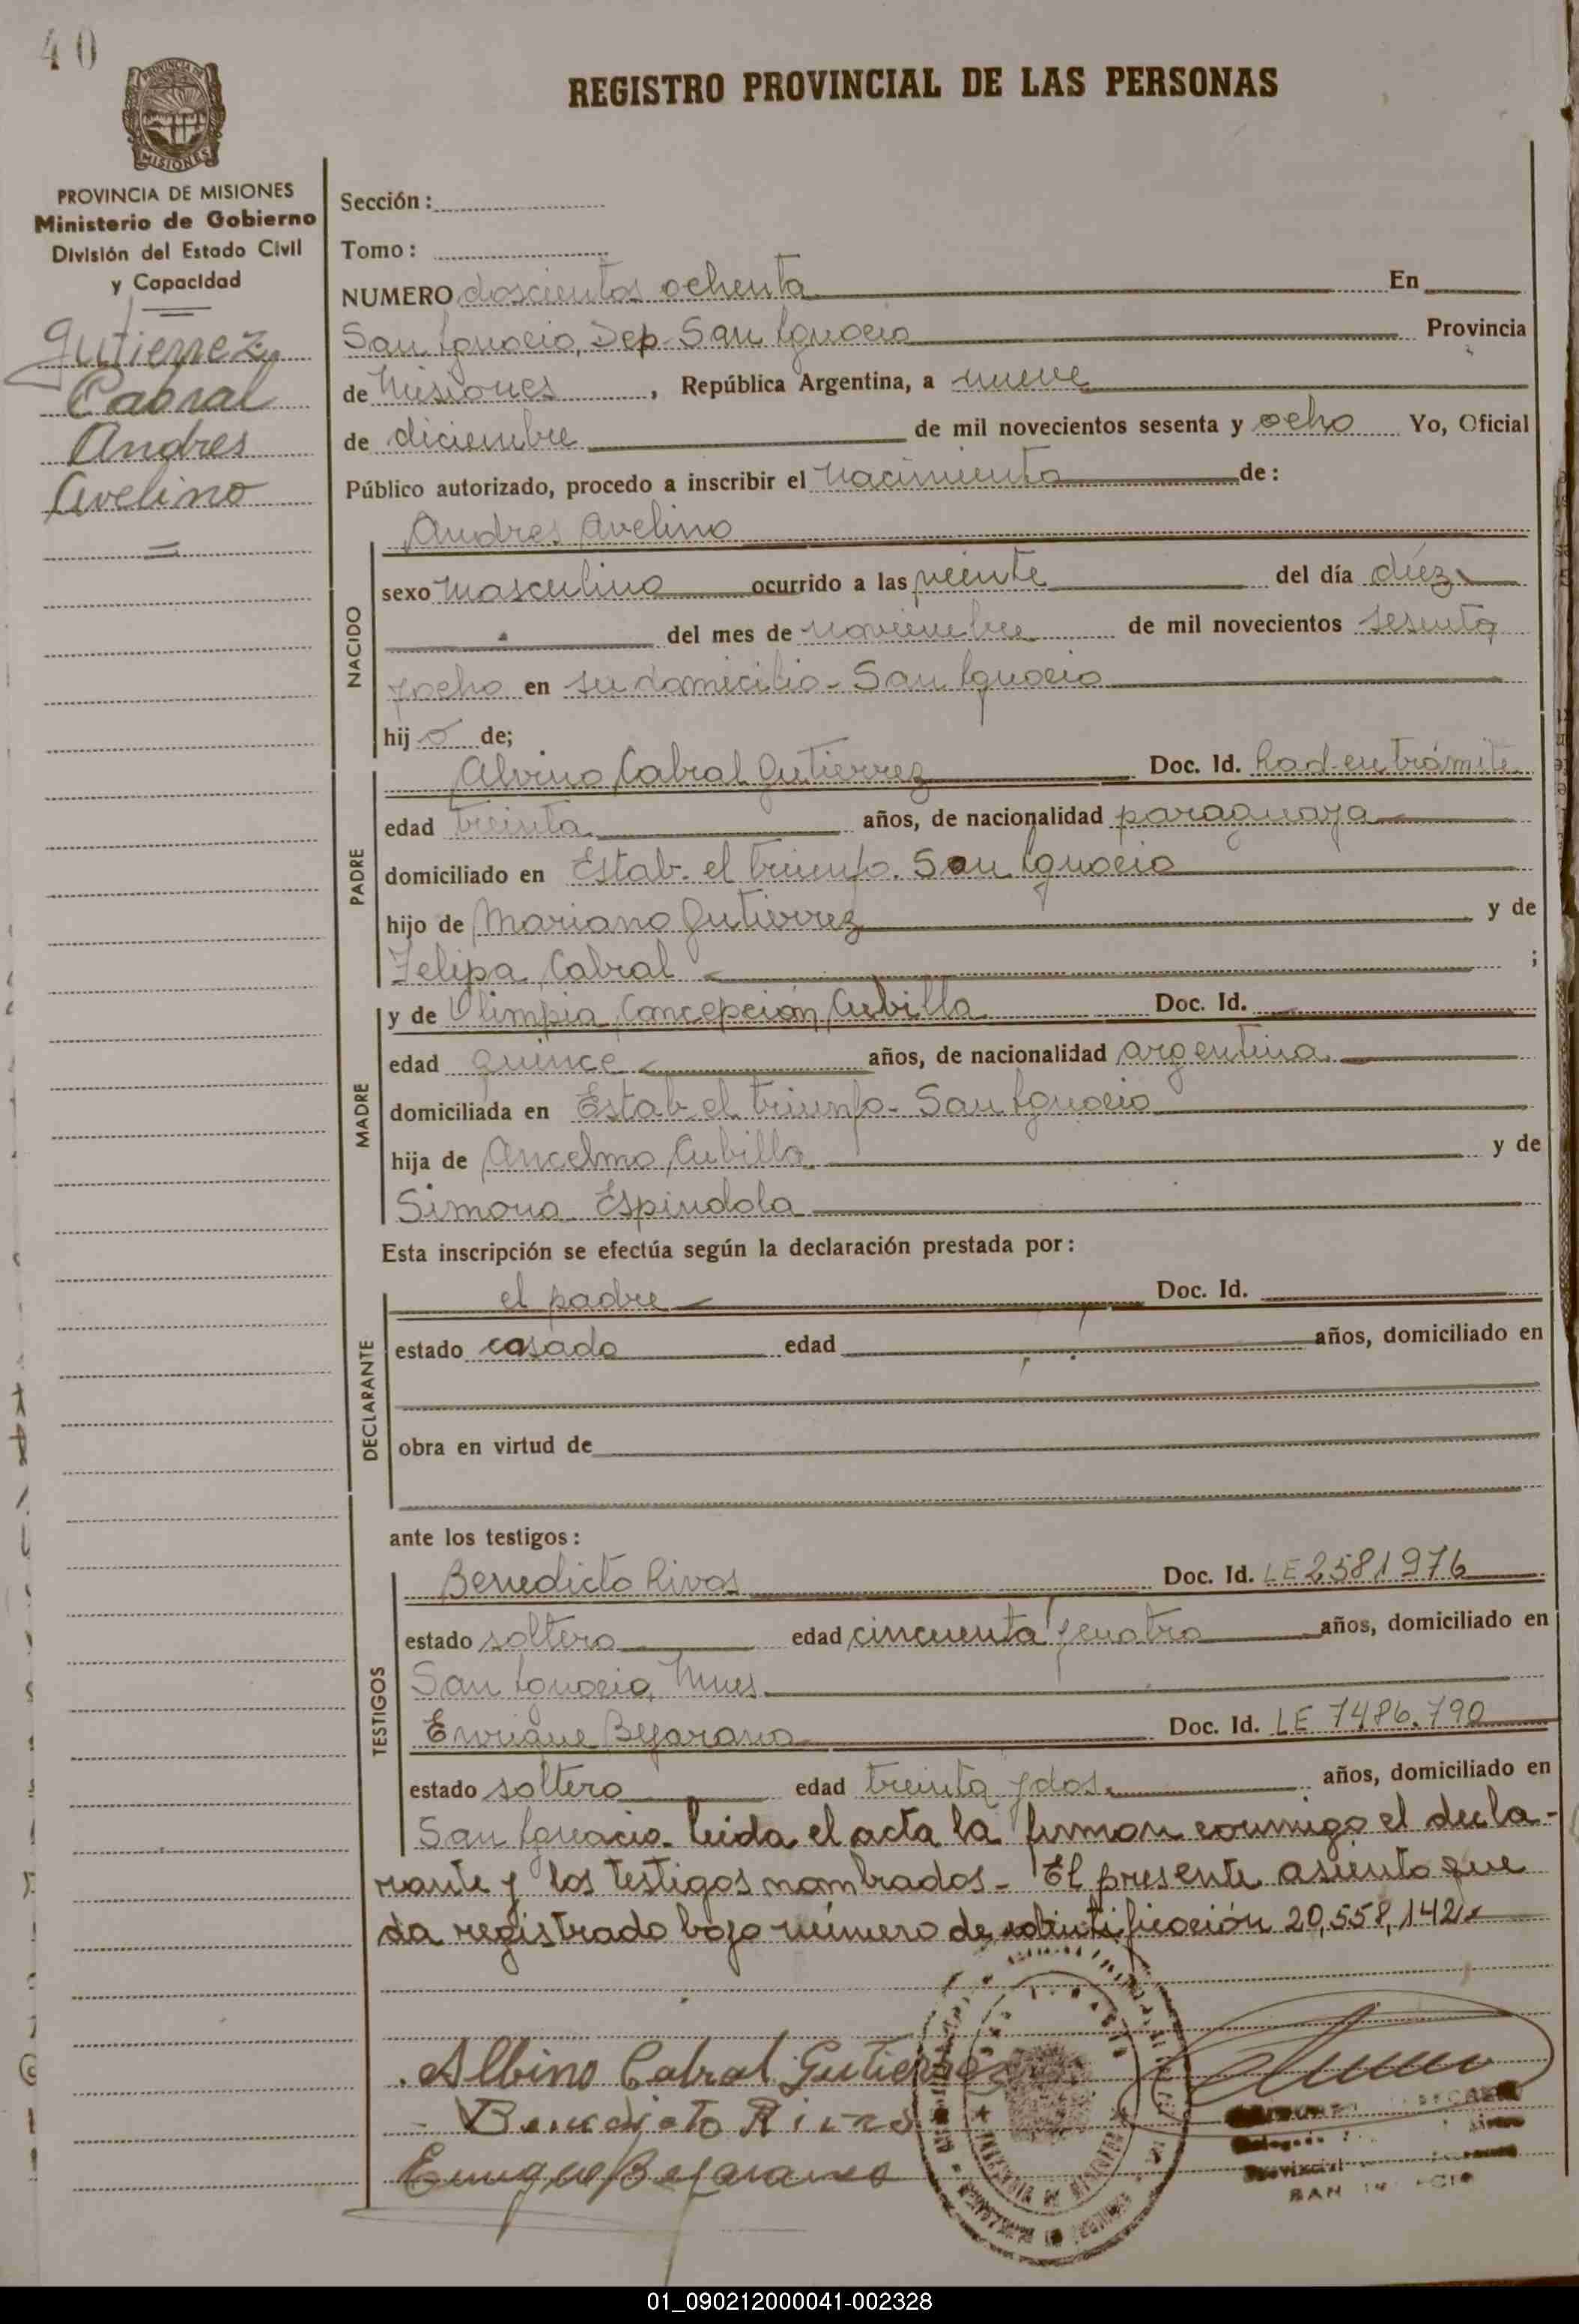 40
PROVINCIA DE
MISIONES
REGISTRO PROVINCIAL DE LAS PERSONAS
PROVINCIA DE MISIONES
Ministerio de Gobierno
División del Estado Civil
y Capacidad
Gutierrez
Cabral
Andres
Avelino
Sección:
Tomo:
NUMERO doscientos ochenta En
San Ignacio, Dep. San Ignacio Provincia
de Misiones, República Argentina, a nueve
de diciembre de mil novecientos sesenta y ocho Yo, Oficial
Público autorizado, procedo a inscribir el nacimiento de:
NACIDO
Andres Avelino
sexo masculino ocurrido a las veinte del día diez
del mes de noviembre de mil novecientos sesenta
y ocho en su domicilio - San Ignacio
hijo de;
PADRE
Alvino Cabral Gutierrez Doc. Id. Rad en trámite
edad treinta años, de nacionalidad paraguaya
domiciliado en Estab. el triunfo. San Ignacio
hijo de Mariano Gutierrez y de
Felipa Cabral ;
MADRE
y de Olimpia Concepción Cubilla Doc. Id.
edad quince años, de nacionalidad argentina
domiciliada en Estab el triunfo - San Ignacio
hija de Ancelmo Cubilla y de
Simona Espindola
Esta inscripción se efectúa según la declaración prestada por:
DECLARANTE
el padre Doc. Id.
estado casado edad años, domiciliado en
obra en virtud de
ante los testigos:
TESTIGOS
Benedicto Rivas Doc. Id. LE 2581976
estado soltero edad cincuenta y cuatro años, domiciliado en
San Ignacio, Mnes
Enrique Bejarano Doc. Id. LE 7486.790
estado soltero edad treinta y dos. años, domiciliado en
San Ignacio. leida el acta la firman conmigo el decla-
rante y los testigos nombrados - El presente asiento que
da registrado bajo número de identificación 20,558,142
Albino Cabral Gutierres
Benedicto Rivas
Enrique Bejarano
SAN
01_090212000041-002328